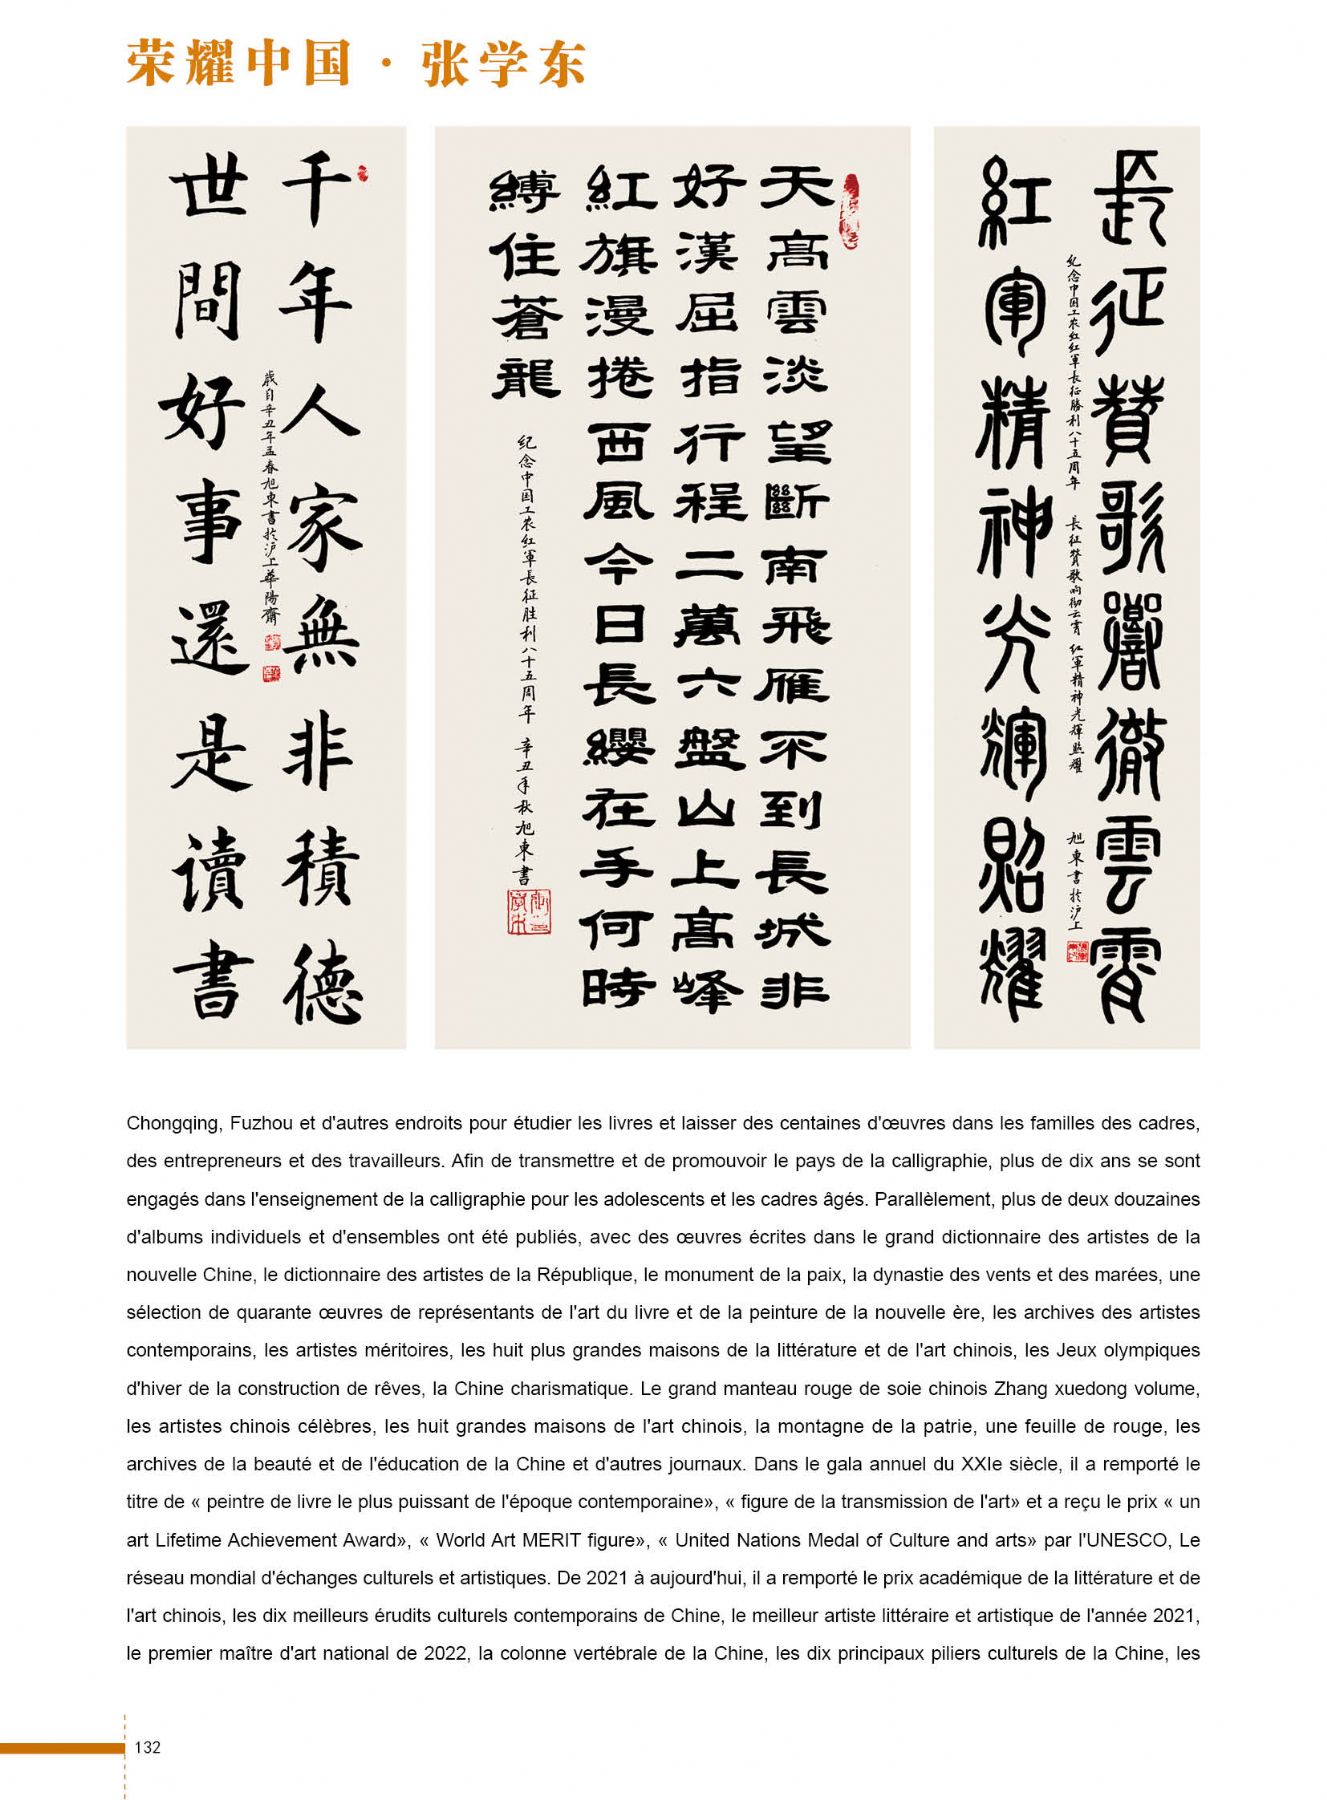 荣耀中国·张学东
長征赞歌響徹雲霄
紅軍精神光輝照耀
纪念中国工农红红軍長征勝利八十五周年 長征赞歌响彻云霄 红軍精神光輝照耀 旭東書於沪上
天高雲淡望斷南飛雁不到長城非
好漢屈指行程二萬六盤山上高峰
紅旗漫捲西風今日長纓在手何時
縛住蒼龍
纪念中国工农红軍長征胜利八十五周年 辛丑年秋旭東書
千年人家無非積德
世間好事還是讀書
歲自辛丑年孟春旭東書於沪上華陽齋
Chongqing, Fuzhou et d'autres endroits pour étudier les livres et laisser des centaines d'œuvres dans les familles des cadres,
des entrepreneurs et des travailleurs. Afin de transmettre et de promouvoir le pays de la calligraphie, plus de dix ans se sont
engagés dans l'enseignement de la calligraphie pour les adolescents et les cadres âgés. Parallèlement, plus de deux douzaines
d'albums individuels et d'ensembles ont été publiés, avec des œuvres écrites dans le grand dictionnaire des artistes de la
nouvelle Chine, le dictionnaire des artistes de la République, le monument de la paix, la dynastie des vents et des marées, une
sélection de quarante œuvres de représentants de l'art du livre et de la peinture de la nouvelle ère, les archives des artistes
contemporains, les artistes méritoires, les huit plus grandes maisons de la littérature et de l'art chinois, les Jeux olympiques
d'hiver de la construction de rêves, la Chine charismatique. Le grand manteau rouge de soie chinois Zhang xuedong volume,
les artistes chinois célèbres, les huit grandes maisons de l'art chinois, la montagne de la patrie, une feuille de rouge, les
archives de la beauté et de l'éducation de la Chine et d'autres journaux. Dans le gala annuel du XXIe siècle, il a remporté le
titre de « peintre de livre le plus puissant de l'époque contemporaine», « figure de la transmission de l'art» et a reçu le prix « un
art Lifetime Achievement Award», « World Art MERIT figure», « United Nations Medal of Culture and arts» par l'UNESCO, Le
réseau mondial d'échanges culturels et artistiques. De 2021 à aujourd'hui, il a remporté le prix académique de la littérature et de
l'art chinois, les dix meilleurs érudits culturels contemporains de Chine, le meilleur artiste littéraire et artistique de l'année 2021,
le premier maître d'art national de 2022, la colonne vertébrale de la Chine, les dix principaux piliers culturels de la Chine, les
132